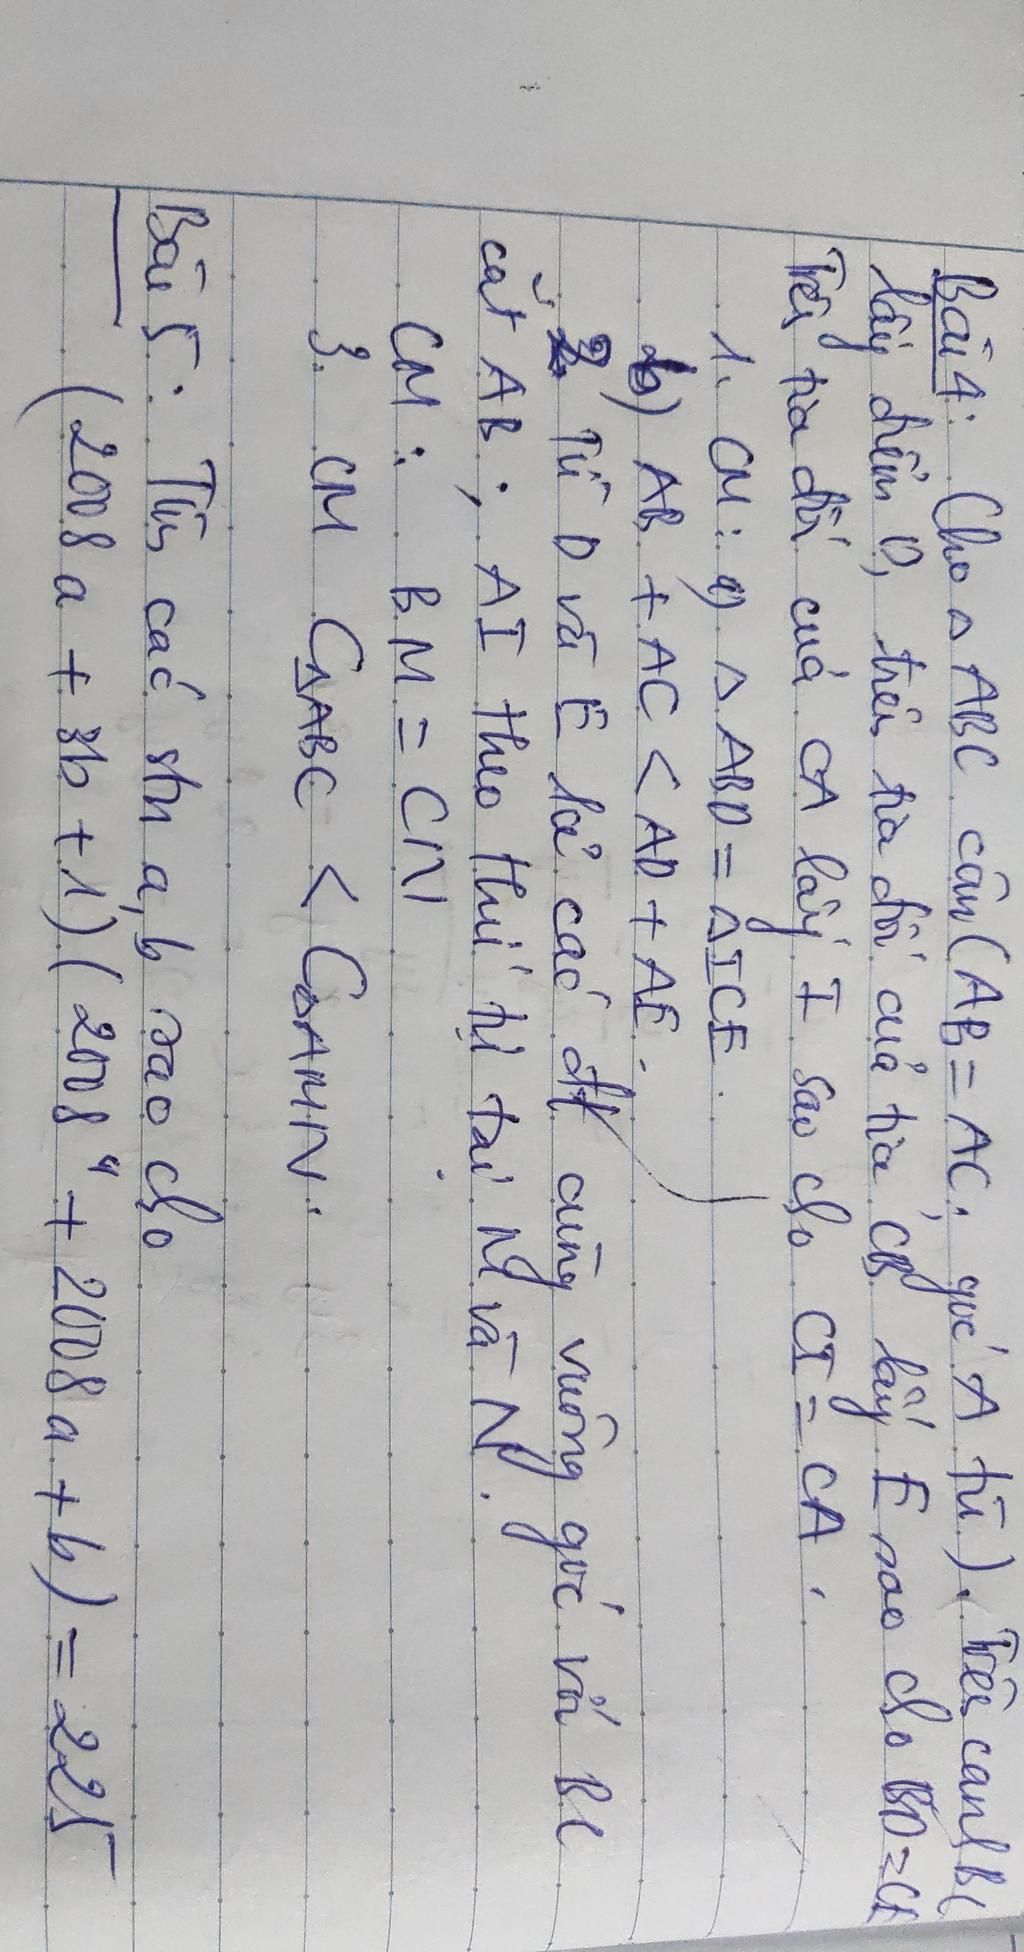 Bài 4: Cho △ABC cân (AB = AC, góc A tù). Trên cạnh BC
lấy điểm D, trên tia đối của tia CB lấy E sao cho BD = CE
Trên tia đối của CA lấy I sao cho CI = CA.
1. CM: a) △ABD = △ICE.
b) AB + AC < AD + AE.
2. Từ D và E kẻ các đt cùng vuông góc với BC
cắt AB ; AI theo thứ tự tại M và N.
CM: BM = CN
3. CM C△ABC < C△AMN.
Bài 5: Tìm các stn a, b sao cho
(2008a + 3b + 1)(2008ᵃ + 2008a + b) = 225